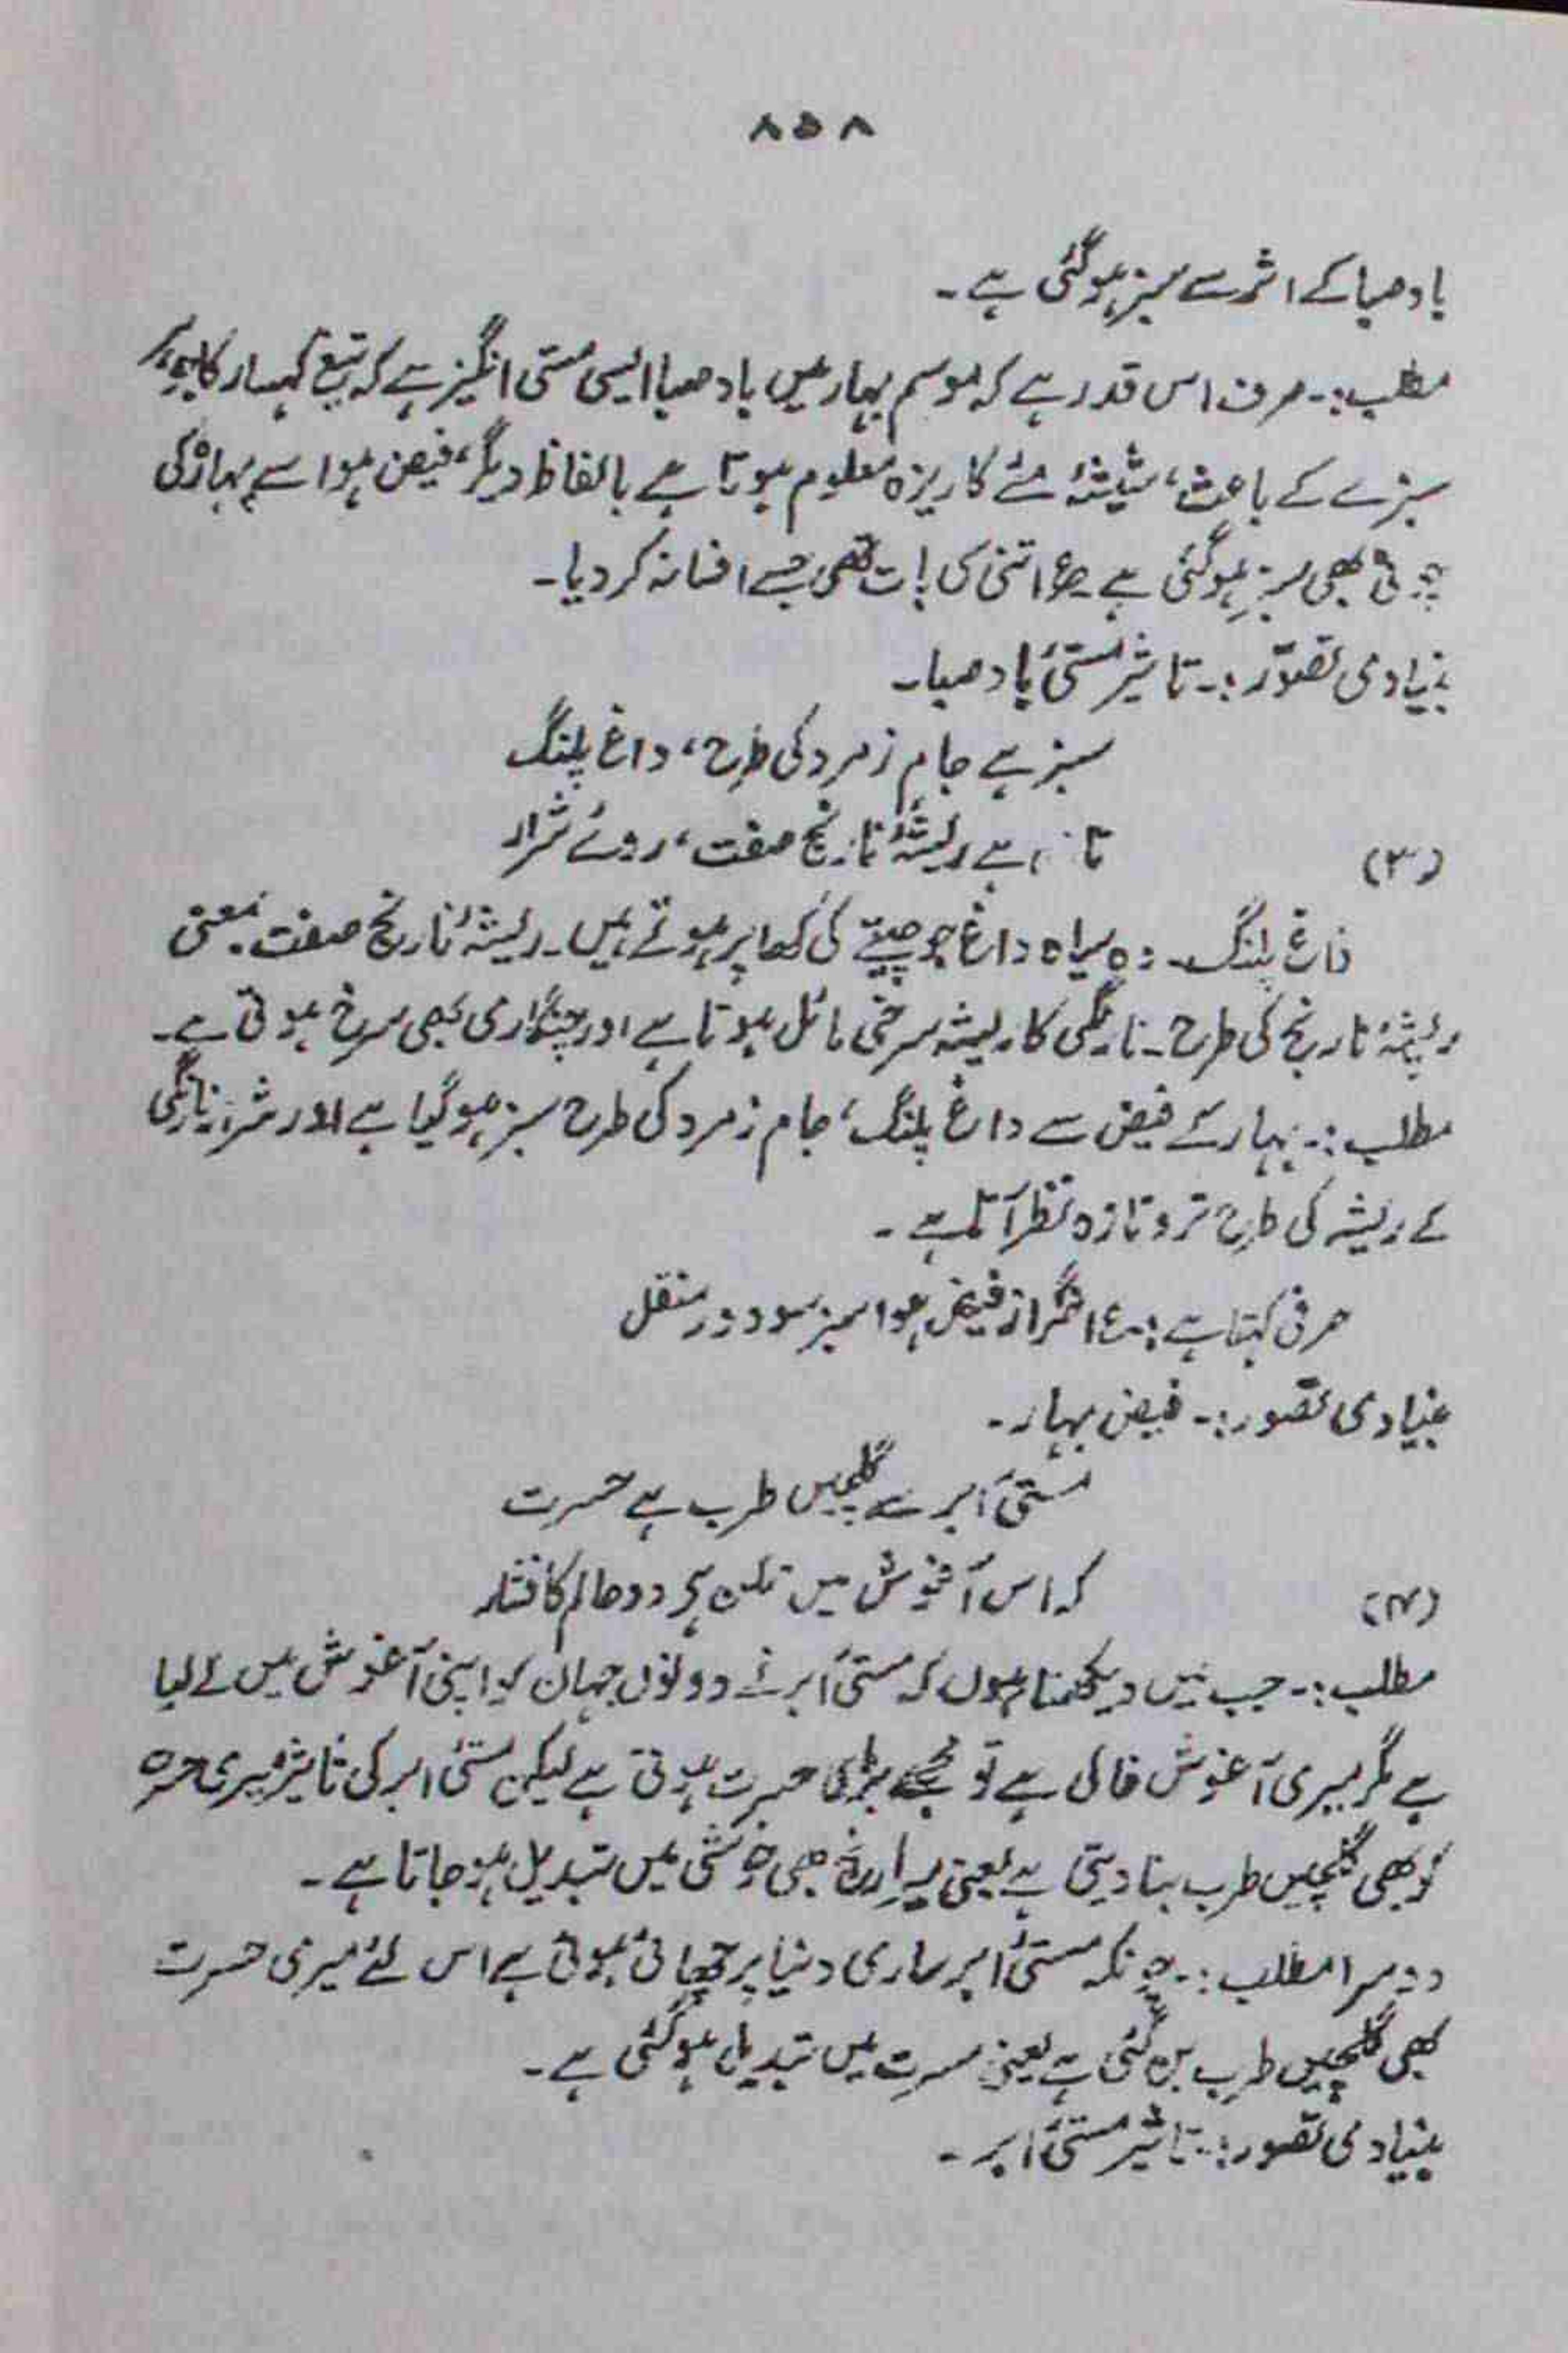 ۸۵۸
بادِ صبا کے اثر سے سبز ہو گئی ہے۔
مطلب:۔ صرف اس قدر ہے کہ موسم بہار میں باد صبا ایسی مستی انگیز ہے کہ تیغ کہسار کا جوہر
سبزے کے باعث، شیشۂ مئے کا ریزہ معلوم ہوتا ہے بالفاظ دیگر، فیض ہوا سے پہاڑ کی
چوٹی بھی سبز ہو گئی ہے ؏ اتنی سی بات تھی جسے افسانہ کر دیا۔
بنیادی تصوّر:۔ تاثیر مستیٔ باد صبا۔
سبز ہے جامِ زمرد کی طرح، داغ پلنگ
(۳) تازہ ہے ریشۂ نارنج صفت، روئے شرار
داغ پلنگ۔ وہ سیاہ داغ جو چیتے کی کھال پر ہوتے ہیں۔ ریشۂ نارنج صفت بمعنی
ریشۂ نارنج کی طرح۔ نارنگی کا ریشہ سرخی مائل ہوتا ہے اور چنگاری بھی سرخ ہوتی ہے۔
مطلب:۔ بہار کے فیض سے داغ پلنگ، جام زمرد کی طرح سبز ہو گیا ہے اور شرر نارنگی
کے ریشہ کی طرح تر و تازہ نظر آتا ہے۔
عرفی کہتا ہے:۔ ؏ اخگر از فیض ہوا سبز شود در منقل
بنیادی تصور:۔ فیض بہار۔
مستیٔ ابر سے گلچیں طرب ہے حسرت
(۴) کہ اس آغوش میں ممکن ہے دو عالم کا فشار
مطلب:۔ جب میں دیکھتا ہوں کہ مستیٔ ابر نے دونوں جہان کو اپنی آغوش میں لے لیا
ہے مگر میری آغوش خالی ہے تو مجھے بڑی حسرت ہوتی ہے لیکن مستیٔ ابر کی تاثیر میری حسرت
کو بھی گلچیں طرب بنا دیتی ہے یعنی میرا رنج بھی خوشی میں تبدیل ہو جاتا ہے۔
دوسرا مطلب:۔ چونکہ مستیٔ ابر ساری دنیا پر چھائی ہوئی ہے اس لئے میری حسرت
بھی گلچیں طرب بن گئی ہے یعنی مسرت میں تبدیل ہو گئی ہے۔
بنیادی تصور:۔ تاثیر مستیٔ ابر۔